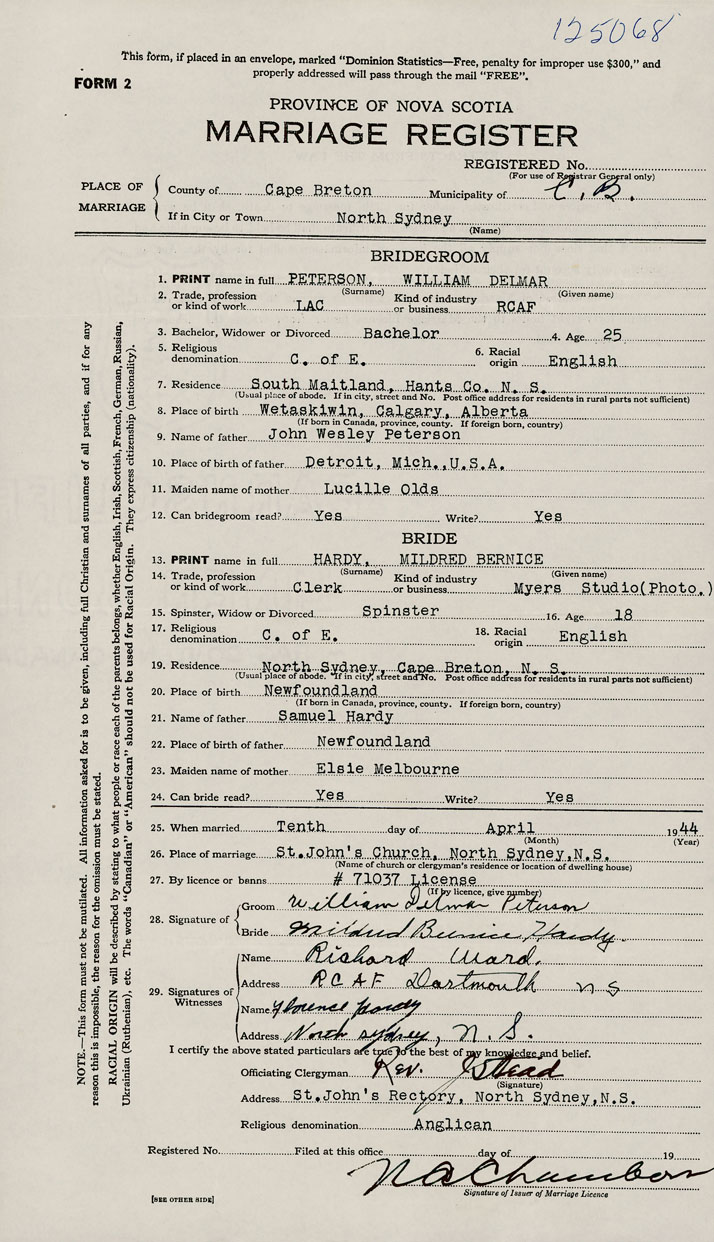 125068
This form, if placed in an envelope, marked “Dominion Statistics—Free, penalty for improper use $300,” and
properly addressed will pass through the mail “FREE”.
FORM 2
PROVINCE OF NOVA SCOTIA
MARRIAGE REGISTER
REGISTERED No.
(For use of Registrar General only)
PLACE OF MARRIAGE
County of Cape Breton Municipality of C. B.
If in City or Town North Sydney
(Name)
BRIDEGROOM
1. PRINT name in full PETERSON, WILLIAM DELMAR
(Surname) (Given name)
2. Trade, profession or kind of work LAC Kind of industry or business RCAF
3. Bachelor, Widower or Divorced Bachelor 4. Age 25
5. Religious denomination C. of E. 6. Racial origin English
7. Residence South Maitland, Hants Co. N. S.
(Usual place of abode. If in city, street and No. Post office address for residents in rural parts not sufficient)
8. Place of birth Wetaskiwin, Calgary, Alberta
(If born in Canada, province, county. If foreign born, country)
9. Name of father John Wesley Peterson
10. Place of birth of father Detroit, Mich.,U.S.A.
11. Maiden name of mother Lucille Olds
12. Can bridegroom read? Yes Write? Yes
BRIDE
13. PRINT name in full HARDY, MILDRED BERNICE
(Surname) (Given name)
14. Trade, profession or kind of work Clerk Kind of industry or business Myers Studio(Photo.)
15. Spinster, Widow or Divorced Spinster 16. Age 18
17. Religious denomination C. of E. 18. Racial origin English
19. Residence North Sydney, Cape Breton, N. S.
(Usual place of abode. If in city, street and No. Post office address for residents in rural parts not sufficient)
20. Place of birth Newfoundland
(If born in Canada, province, county. If foreign born, country)
21. Name of father Samuel Hardy
22. Place of birth of father Newfoundland
23. Maiden name of mother Elsie Melbourne
24. Can bride read? Yes Write? Yes
25. When married Tenth day of April 1944
(Month) (Year)
26. Place of marriage St.John's Church, North Sydney,N.S.
(Name of church or clergyman's residence or location of dwelling house)
27. By licence or banns # 71037 License
(If by licence, give number)
28. Signature of
Groom William Delmar Peterson
Bride Mildred Bernice Hardy.
29. Signatures of Witnesses
Name Richard Ward.
Address RCAF Dartmouth NS
Name Florence Hardy
Address North Sydney, N. S.
I certify the above stated particulars are true to the best of my knowledge and belief.
Officiating Clergyman Rev. Stead
(Signature)
Address St.John's Rectory, North Sydney,N.S.
Religious denomination Anglican
Registered No. Filed at this office day of 19
N A Chambers
Signature of Issuer of Marriage Licence
[SEE OTHER SIDE]
NOTE.—This form must not be mutilated. All information asked for is to be given, including full Christian and surnames of all parties, and if for any
reason this is impossible, the reason for the omission must be stated.
RACIAL ORIGIN will be described by stating to what people or race each of the parents belongs, whether English, Irish, Scottish, French, German, Russian,
Ukrainian (Ruthenian), etc. The words “Canadian” or “American” should not be used for Racial Origin. They express citizenship (nationality).